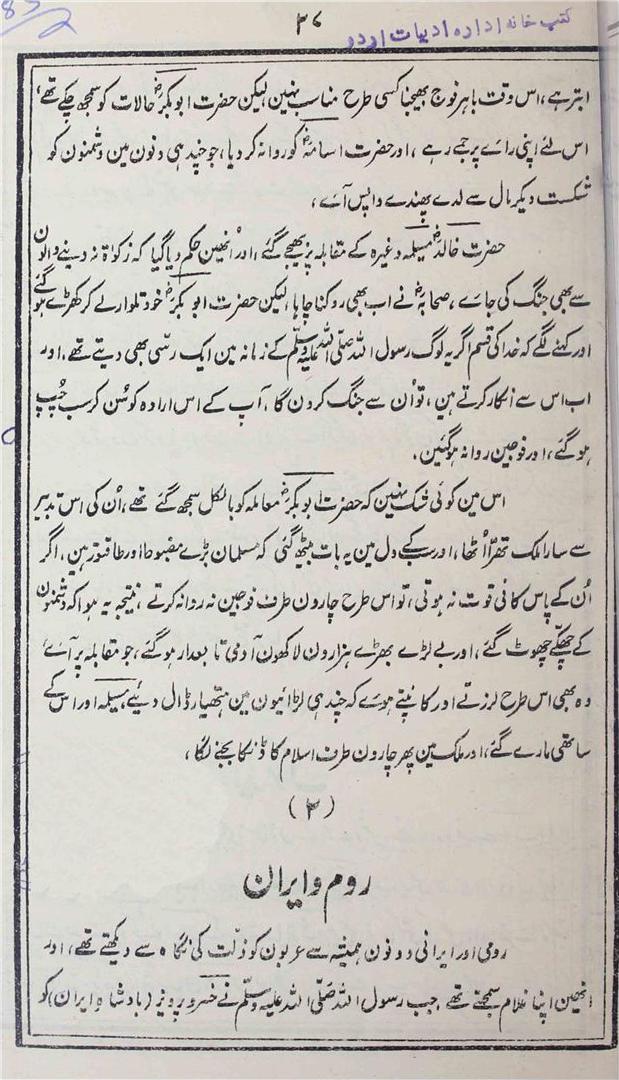 کتب خانہ ادارہ ادبیات اردو
۳۷
ابتر ہے، اس وقت باہر فوج بھیجنا کسی طرح مناسب نہین لیکن حضرت ابوبکرؓ حالات کو سمجھ چکے تھے،
اس لئے اپنی رائے پر جمے رہے، اور حضرت اسامہؓ کو روانہ کر دیا، جو چند ہی دنون مین دشمنون کو
شکست دیکر مال سے لدے پھندے واپس آئے،
حضرت خالدؓ مسیلمہ وغیرہ کے مقابلہ پر بھیجے گئے، اور اُنھین حکم دیا گیا کہ زکوٰۃ نہ دینے والون
سے بھی جنگ کی جائے، صحابہؓ نے اب بھی روکنا چاہا، لیکن حضرت ابوبکرؓ خود تلوار لے کر کھڑے ہو گئے
اور کہنے لگے کہ خدا کی قسم اگر یہ لوگ رسول اللہ صلی اللہ علیہ وسلم کے زمانہ مین ایک رسّی بھی دیتے تھے، اور
اب اس سے انکار کرتے ہین، تو اُن سے جنگ کرون گا، آپ کے اس ارادہ کو سُن کر سب چُپ
ہو گئے، اور فوجین روانہ ہو گئین،
اس مین کوئی شک نہین کہ حضرت ابوبکرؓ معاملہ کو بالکل سمجھ گئے تھے، اُن کی اس تدبیر
سے سارا ملک تھرّا اُٹھا، اور سب کے دل مین یہ بات بیٹھ گئی کہ مسلمان بڑے مضبوط اور طاقتور ہین، اگر
اُن کے پاس کافی قوت نہ ہوتی، تو اس طرح چارون طرف فوجین نہ روانہ کرتے، نتیجہ یہ ہوا کہ دشمنون
کے چھکّے چھوٹ گئے، اور بے لڑے بھڑے ہزارون لاکھون آدمی تابعدار ہو گئے، جو مقابلہ پر آئے
وہ بھی اس طرح لرزتے اور کانپتے ہوئے کہ چند ہی لڑائیون مین ہتھیار ڈال دیئے، مسیلمہ اور اس کے
ساتھی مارے گئے، اور ملک مین پھر چارون طرف اسلام کا ڈنکا بجنے لگا،
(۳)
روم و ایران
رومی اور ایرانی دونون ہمیشہ سے عربون کو ذلّت کی نگاہ سے دیکھتے تھے، اور
انھین اپنا غلام سمجھتے تھے، جب رسول اللہ صلی اللہ علیہ وسلم نے خسرو پرویز (بادشاہ ایران) کو